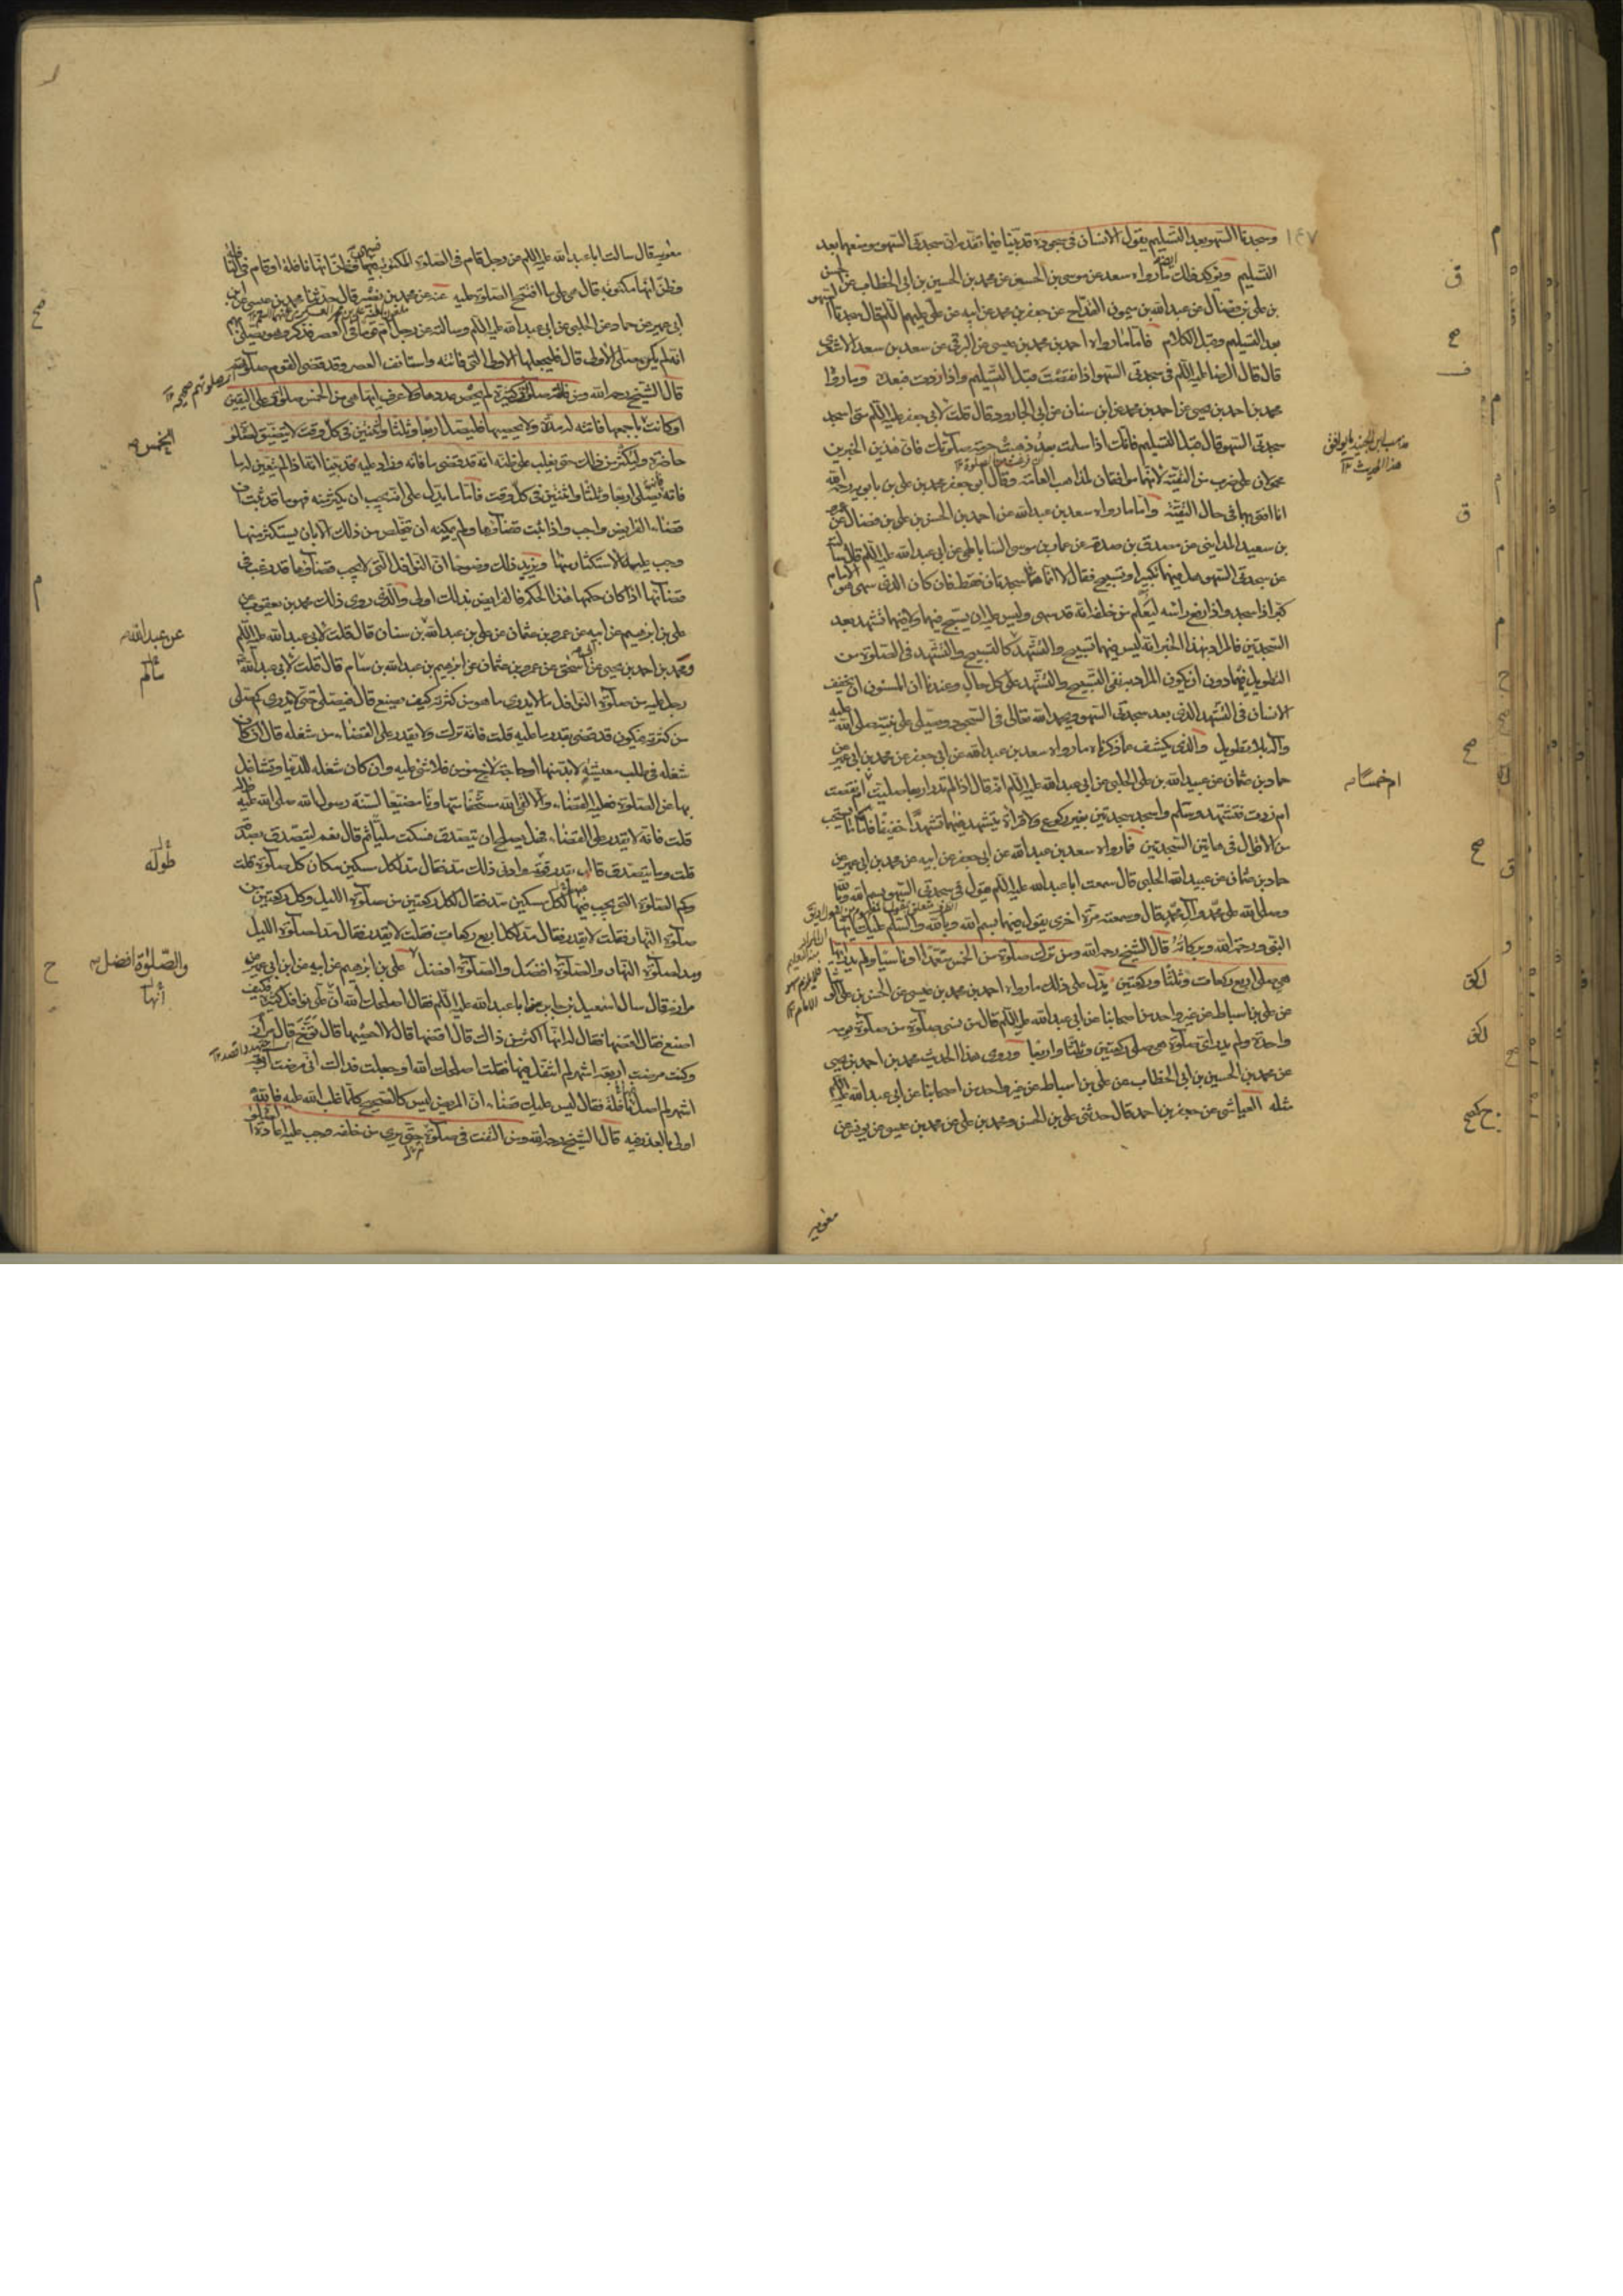 وسجدتا السهو بعد التسليم يقول الانسان فى سجوده قد بينا فيما تقدم ان سجدتى السهو موضعهما بعد
التسليم ويؤكد ذلك ما رواه سعد عن موسى بن الحسن عن محمد بن الحسين بن ابى الخطاب عن الحسن
بن على بن فضال عن عبدالله بن ميمون القداح عن جعفر بن محمد عن ابيه عن على عليهم السلم قال سجدتا السهو
بعد التسليم وقبل الكلام فاما ما رواه احمد بن محمد بن عيسى عن البرقى عن سعد بن سعد الاشعرى
قال قال الرضا عليه السلم فى سجدتى السهو اذا نقصت قبل التسليم واذا زدت فبعده وما رواه
محمد بن احمد بن يحيى عن احمد بن محمد عن ابن سنان عن ابى الجارود قال قلت لابى جعفر عليه السلم متى اسجد
سجدتى السهو قال قبل التسليم فانك اذا سلمت بعد ذهبت حرمة صلوتك فان هذين الخبرين
محمولان على ضرب من التقية لانهما موافقان لمذاهب العامة وقال ابى جعفر محمد بن على بن بابويه رحمه الله
انا افتى بهما فى حال التقية واما ما رواه سعد بن عبد الله عن احمد بن الحسن بن على بن فضال عن عمرو
بن سعيد المداينى عن مصدق بن صدقة عن عمار بن موسى الساباطى عن ابى عبدالله عليه السلم قال سألته
عن سجدتى السهو هل فيهما تكبير او تسبيح فقال لا انما هما سجدتان فقط فان كان الذى سهى هو الامام
كبر اذا سجد واذا رفع راسه ليعلم من خلفه انه قد سهى وليس عليه ان يسبح فيهما ولا فيهما تشهد بعد
السجدتين فالمراد بهذا الخبر انه ليس فيهما تسبيح والتشهد كالتسبيح والتشهد فى الصلوة من
التطويل فيهما دون ان يكون المراد به نفى التسبيح والتشهد على كل حال وعندنا ان المسنون ان يخفف
الانسان فى التشهد الذى بعد سجدتى السهو ويحمد الله تعالى فى السجود ويصلى على نبيه صلى الله عليه
وآله بلا تطويل والذى يكشف عما ذكرناه ما رواه سعد بن عبد الله عن ابى جعفر عن محمد بن ابى عمير عن
حماد بن عثمان عن عبيد الله بن على الحلبى عن ابى عبدالله عليه السلم انه قال اذا لم تدر اربعا صليت ام نقصت
ام زدت فتشهد وسلم واسجد سجدتين بغير ركوع ولا قراءة يتشهد فيهما تشهدا خفيفا فاما ما يستحب
من الاقوال فى هاتين السجدتين فما رواه سعد بن عبد الله عن ابى جعفر عن ابيه عن محمد بن ابى عمير عن
حماد بن عثمان عن عبيد الله الحلبى قال سمعت ابا عبدالله عليه السلم يقول فى سجدتى السهو بسم الله وبالله
وصلى الله على محمد وآل محمد قال وسمعته مرة اخرى يقول فيهما بسم الله وبالله والسلم عليك ايها
النبى ورحمة الله وبركاته قال الشيخ رحمه الله ومن ترك صلوة من الخمس متعمدا او ناسيا ولم يدر ايها
هى صلى اربع ركعات وثلثا وركعتين يدل على ذلك ما رواه احمد بن محمد بن عيسى عن الحسن بن على الوشا
عن على بن اسباط عن غير واحد من اصحابنا عن ابى عبدالله عليه السلم قال من نسى صلوة من صلوة يومه
واحدة ولم يدر اى صلوة هى صلى ركعتين وثلثا واربعا وروى هذا الحديث محمد بن احمد بن يحيى
عن محمد بن الحسين بن ابى الخطاب عن على بن اسباط عن غير واحد من اصحابنا عن ابى عبدالله عليه السلم
مثله العياشى عن جعفر بن احمد قال حدثنى على بن الحسن ومحمد بن على عن محمد بن عيسى عن يونس عن
معوية
١٤٧
مذهب ابن الجنيد يوافق
هذا الحديث
ام خمسا
معوية قال سالت ابا عبدالله عليه السلم عن رجل قام فى الصلوة المكتوبة فسهى فظن انها نافلة او قام فى النافلة
فظن انها مكتوبة قال هى على ما افتتح الصلوة عليه عنه عن محمد بن نصير قال حدثنا محمد بن عيسى عن ابن
ابى عمير عن حماد عن الحلبى عن ابى عبدالله عليه السلم وسالته عن رجل ام قوما فى العصر فذكر وهو يصلى
انه لم يكن صلى الاولى قال فليجعلها الاولى التى فاتته واستانف العصر وقد قضى القوم صلوتهم
قال الشيخ رحمه الله ومن فاتته صلوة كثيرة لم يحص عددها ولا عرف ايتها هى من الخمس صلوة على اليقين
او كانت باجمعها فاتته له مدة ولا يحصيها فليصل اربعا وثلثا واثنتين فى كل وقت لا يتضيق لصلوة
حاضرة وليكثر من ذلك حتى يغلب على ظنه انه قد قضى ما فاته وزاد عليه قد بينا انه اذا لم يتعين له ما
فاته فيصلى اربعا وثلثا واثنتين فى كل وقت فاما ما يدل على انه يجب ان يكثر منه فهو ما قد ثبت ان
قضاء الفرايض واجب واذا ثبت قضاؤها ولم يمكنه ان يتخلص من ذلك الا بان يستكثر منها
وجب عليه الاستكثار منها ويزيد ذلك وضوحا ان النوافل التى لا يجب قضاؤها قد رغب فى
قضائها اذا كان حكمها هذا الحكم فالفرايض بذلك اولى والذى روى ذلك محمد بن يعقوب عن
على بن ابرهيم عن ابيه عن عمرو بن عثمان عن على بن عبد الله بن سنان قال قلت لابى عبدالله عليه السلم
ومحمد بن احمد بن يحيى عن ابى اسحق عن عمرو بن عثمان عن ابرهيم بن عبدالله بن سام قال قلت لابى عبدالله
رجل عليه من صلوة النوافل ما لا يدرى ما هو من كثرته كيف يصنع قال فيصلى حتى لا يدرى كم صلى
من كثرته فيكون قد قضى بقدر ما عليه قلت فانه ترك ولا يقدر على القضاء من شغله قال ان كان
شغله فى طلب معيشة لابد منها او حاجة لاخ مؤمن فلا شئ عليه وان كان شغله للدنيا وتشاغل
بها عن الصلوة فعليه القضاء والا لقى الله مستخفا متهاونا مضيعا لسنة رسول الله صلى الله عليه وآله
قلت فانه لا يقدر على القضاء فهل يصلح ان يتصدق فسكت مليا ثم قال نعم ليتصدق بصدقة
قلت وما يتصدق قال بقدر قوته وادنى ذلك مد فقال مد لكل مسكين مكان كل صلوة قلت
وكم الصلوة التى يجب فيها لكل مسكين مد فقال لكل ركعتين من صلوة الليل وكل ركعتين من
صلوة النهار فقلت لا يقدر فقال مد لكل اربع ركعات فقلت لا يقدر فقال مد لصلوة الليل
ومد لصلوة النهار والصلوة افضل والصلوة افضل على بن ابرهيم عن ابيه عن ابن ابى عمير عن
مرازم قال سال اسمعيل بن جابر ابا عبدالله عليه السلم فقال اصلحك الله ان على نوافل كثيرة فكيف
اصنع فقال اقضها فقال له انها اكثر من ذاك قال اقضها قال لا احصيها قال توخ قال مرازم
وكنت مرضت اربعة اشهر لم اتنفل فيها فقلت اصلحك الله او جعلت فداك انى مرضت اربعة
اشهر لم اصل نافلة فقال ليس عليك قضاء ان المريض ليس كالصحيح كلما غلب الله عليه فالله
اولى بالعذر فيه قال الشيخ رحمه الله ومن التفت فى صلوة حتى يرى من خلفه وجب عليه اعادة الصلوة
الخمس
عن عبدالله
سالم
طوله
والصلوة افضل
انها